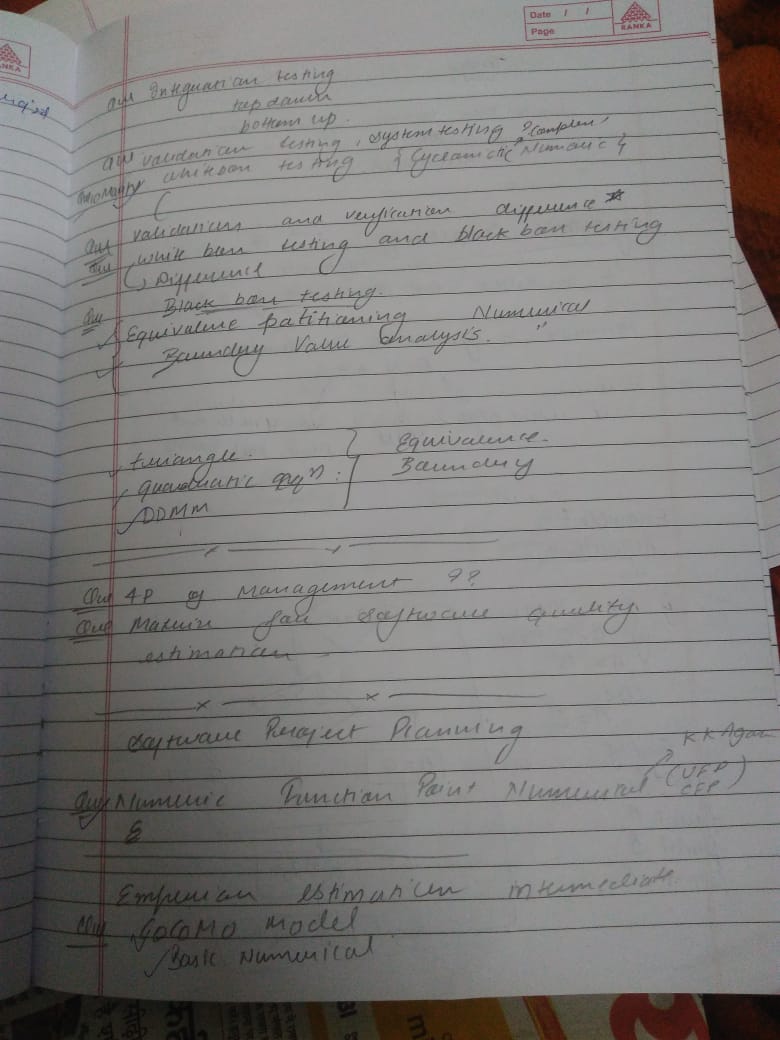 Date / /
Page
RANKA
NKA
Que Integration testing
top down
bottom up.
Que validation testing, system testing
white box testing { Cyclomatic Numeric }
? Complex,
(
Que validations and verification difference
Que white box testing and black box testing
Difference
Que Black box testing.
Equivalence patitioning Numerical
Boundry Value analysis. "
triangle.
quadratic eqn : Equivalence.
DDMM Boundry
Que 4P of Management ??
Que Matrix for software quality
estimation
Software Project Planning
KK Agar
Que Numeric Function Point Numerical (UFP)
CFP
&
estimation intermediate.
Que COCOMO Model
Basic Numerical